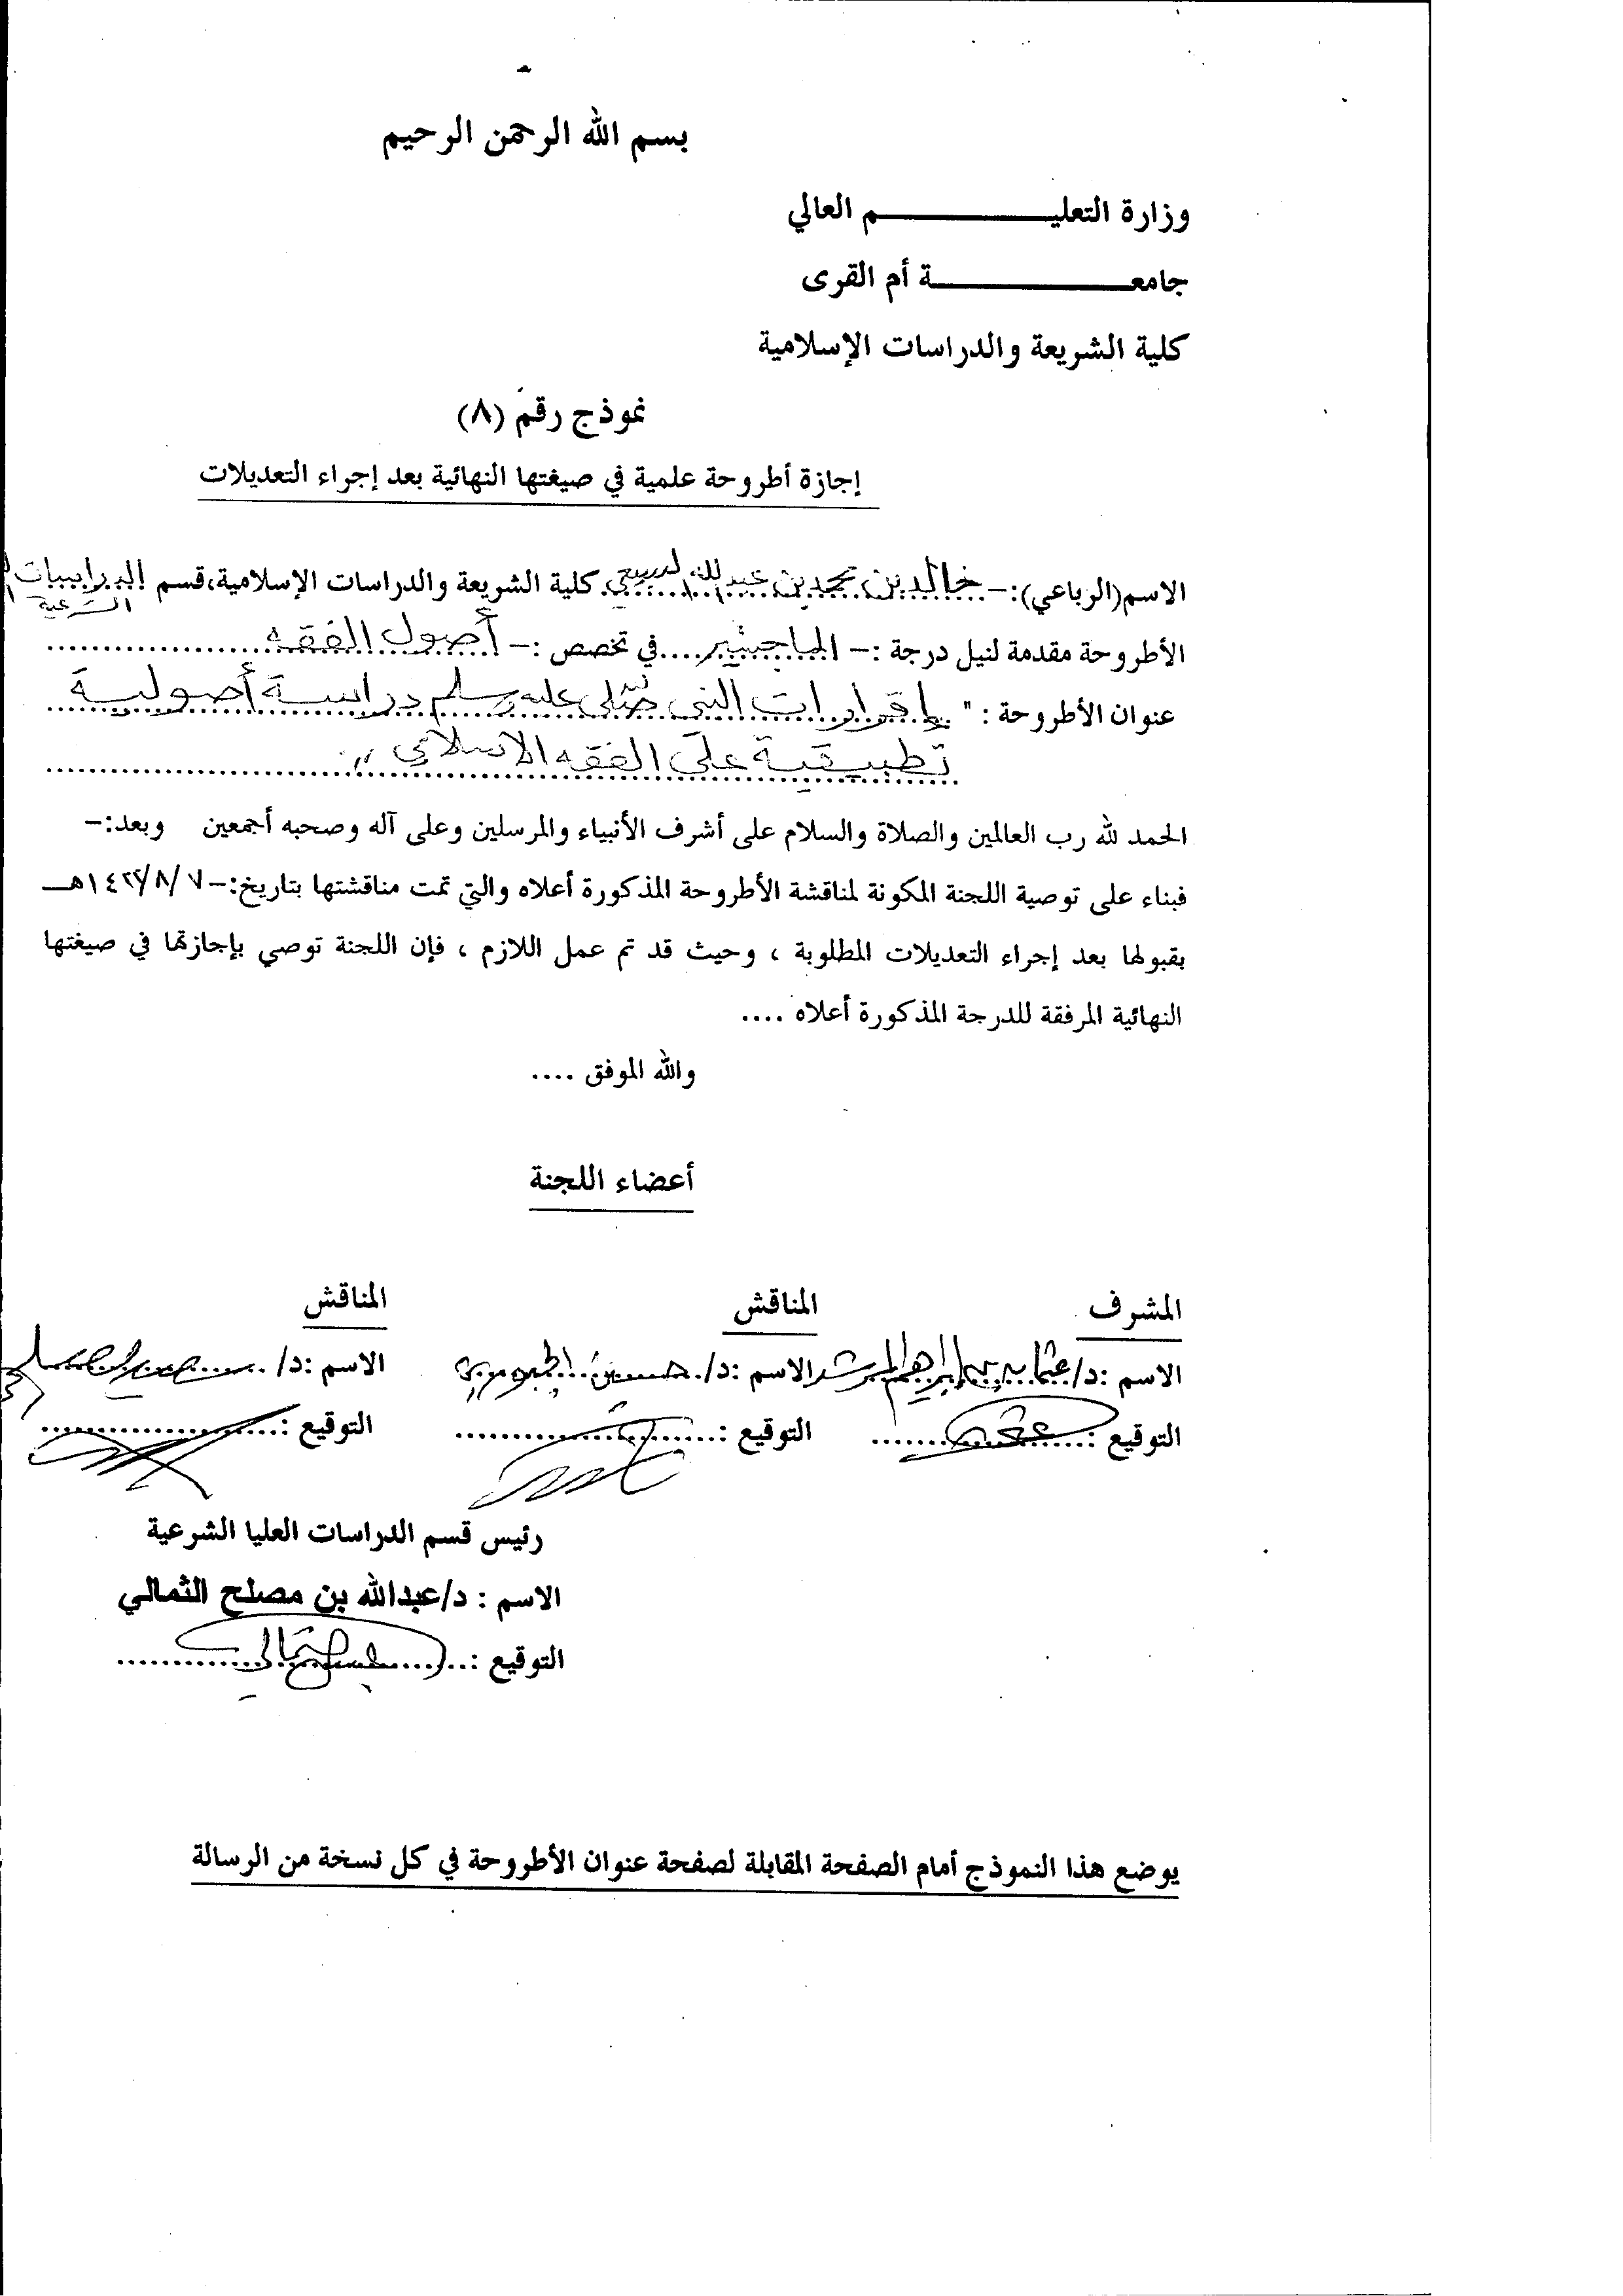 بسم الله الرحمن الرحيم
وزارة التعليـــــــــــم العالي
جامعـــــــــــــة أم القرى
كلية الشريعة والدراسات الإسلامية
نموذج رقم (٨)
إجازة أطروحة علمية في صيغتها النهائية بعد إجراء التعديلات
الاسم(الرباعي):- خالد بن محمد بن عبدالله كلية الشريعة والدراسات الإسلامية،قسم الدراسات
الشرعية
الأطروحة مقدمة لنيل درجة :- الماجستير.....في تخصص :- أصول الفقه
عنوان الأطروحة : " إقرارات النبي صلى الله عليه وسلم دراسة أصولية
تطبيقية على الفقه الاسلامي "
الحمد لله رب العالمين والصلاة والسلام على أشرف الأنبياء والمرسلين وعلى آله وصحبه أجمعين وبعد:-
فبناء على توصية اللجنة المكونة لمناقشة الأطروحة المذكورة أعلاه والتي تمت مناقشتها بتاريخ:- ٧/ ٨/ ١٤٢٢هــ
بقبولها بعد إجراء التعديلات المطلوبة ، وحيث قد تم عمل اللازم ، فإن اللجنة توصي بإجازتها في صيغتها
النهائية المرفقة للدرجة المذكورة أعلاه ....
والله الموفق ....
أعضاء اللجنة
المشرف المناقش المناقش
الاسم :د/ عثمان بن إبراهيم المرشد الاسم :د/ حسين الجبوري الاسم :د/
التوقيع : التوقيع : التوقيع :
رئيس قسم الدراسات العليا الشرعية
الاسم : د/عبدالله بن مصلح الثمالي
التوقيع :
يوضع هذا النموذج أمام الصفحة المقابلة لصفحة عنوان الأطروحة في كل نسخة من الرسالة